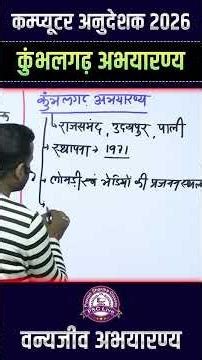 कम्प्यूटर अनुदेशक 2026
कुंभलगढ़ अभयारण्य
कुंभलगढ़ अभयारण्य
राजसमंद, उदयपुर, पाली
स्थापना → 1971
लोमड़ी एवं भेड़ियों की प्रजनन स्थल
वन्यजीव अभयारण्य